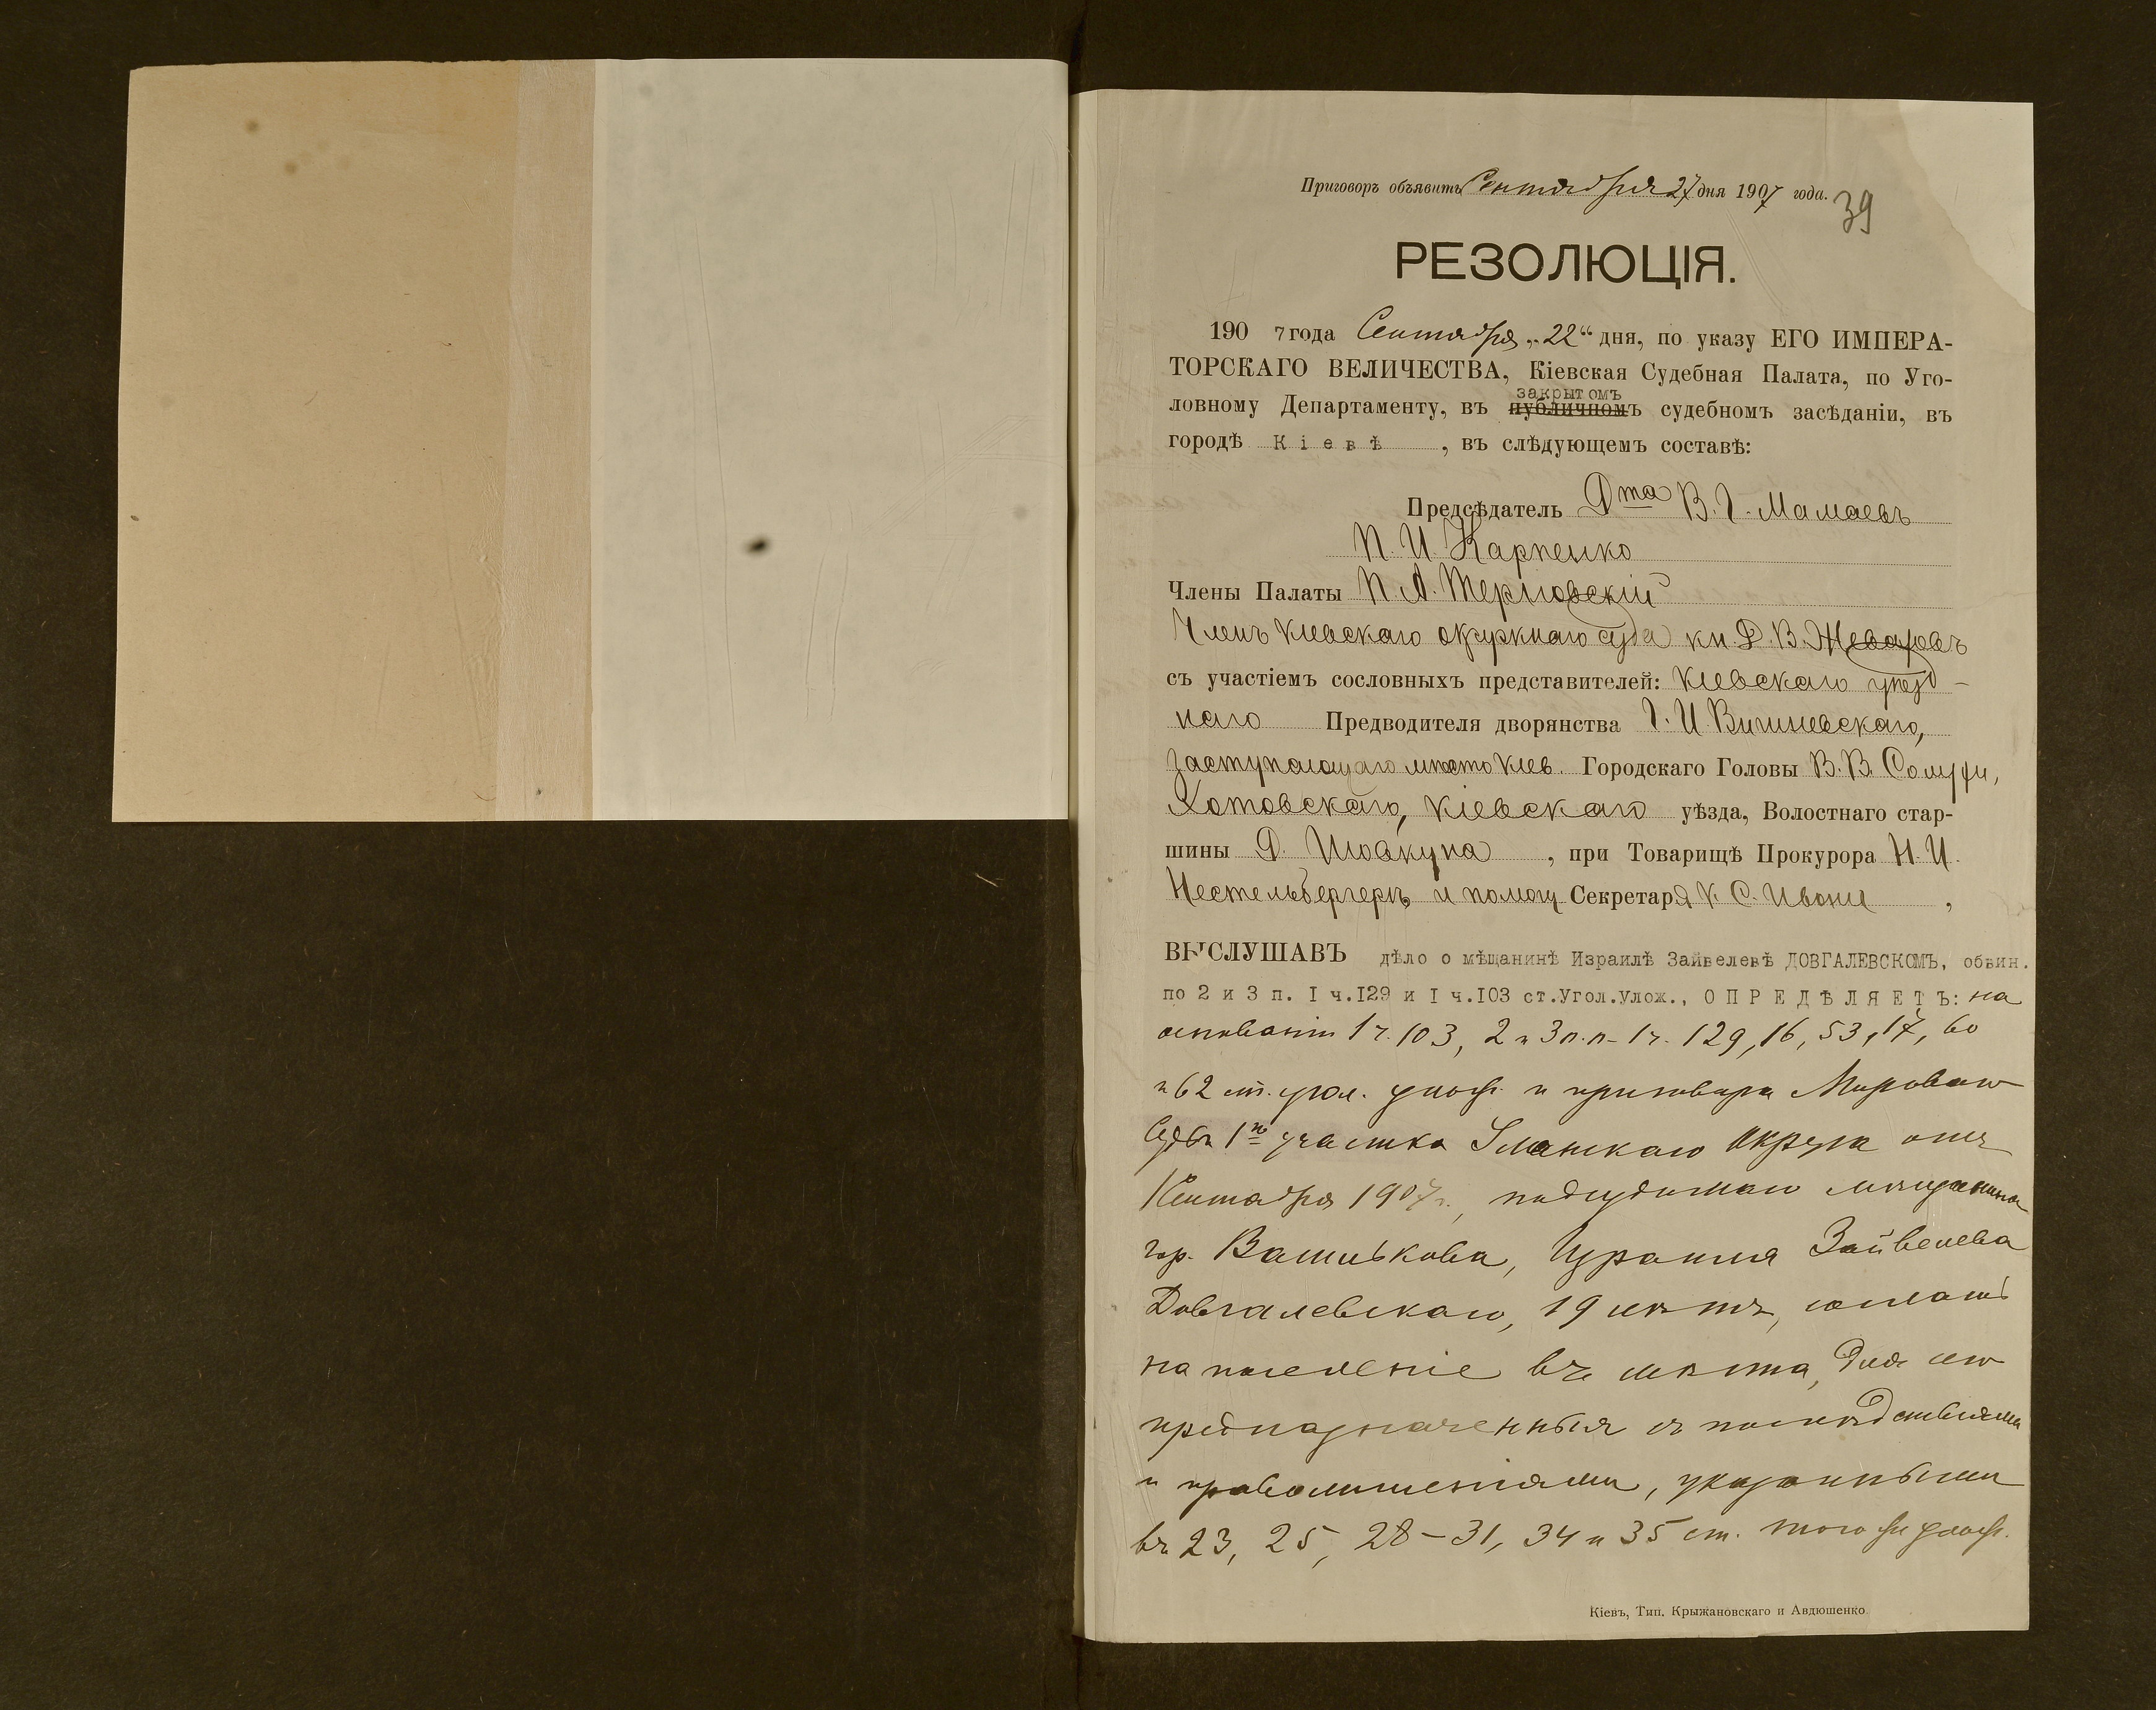 Приговоръ объявить Сентября 27 дня 1907 года.
39
РЕЗОЛЮЦІЯ.
1907 года Сентября „22“ дня, по указу ЕГО ИМПЕРА-
ТОРСКАГО ВЕЛИЧЕСТВА, Кіевская Судебная Палата, по Уго-
закрытомъ
ловному Департаменту, въ публичномъ судебномъ засѣданіи, въ
городѣ Кіевѣ, въ слѣдующемъ составѣ:
Предсѣдатель Дта В. Г. Мамаевъ
П. И. Карпенко
Члены Палаты П. А. Терновскій
Членъ Кіевскаго окружнаго суда кн. Д. В. Жеваховъ
съ участіемъ сословныхъ представителей: Кіевскаго уѣзд-
наго Предводителя дворянства Г. И. Вишневскаго,
Заступающаго мѣсто Кіев. Городскаго Головы В. В.
Хотовскаго, Кіевскаго уѣзда, Волостнаго стар-
шины при Товарищѣ Прокурора Н. И.
Нестельбергеръ и помощ Секретаря К. С.
ВЫСЛУШАВЪ дѣло о мѣщанинѣ Израилѣ Зайвелевѣ ДОВГАЛЕВСКОМЪ, обвин.
по 2 и 3 п. I ч.I29 и I ч.I03 ст.Угол.Улож., ОПРЕДѢЛЯЕТЪ: на
основаніи 1 ч. 103, 2 и 3 п.п. 1 ч. 129, 16, 53, 17, 60
и 62 ст. угол. улож. и приговора Мирового
Судьи 1го участка Уманскаго Округа отъ
Сентября 1907 г., подсудимаго мѣщанина
гор. Василькова, Израиля Зайвелева
Довгалевскаго, 19 лѣтъ, сослать
на поселеніе въ мѣста, для сего
предназначенныя съ послѣдствіями
и праволишеніями, указанными
въ 23, 25, 28–31, 34 и 35 ст. того же улож.
Кіевъ, Тип. Крыжановскаго и Авдюшенко